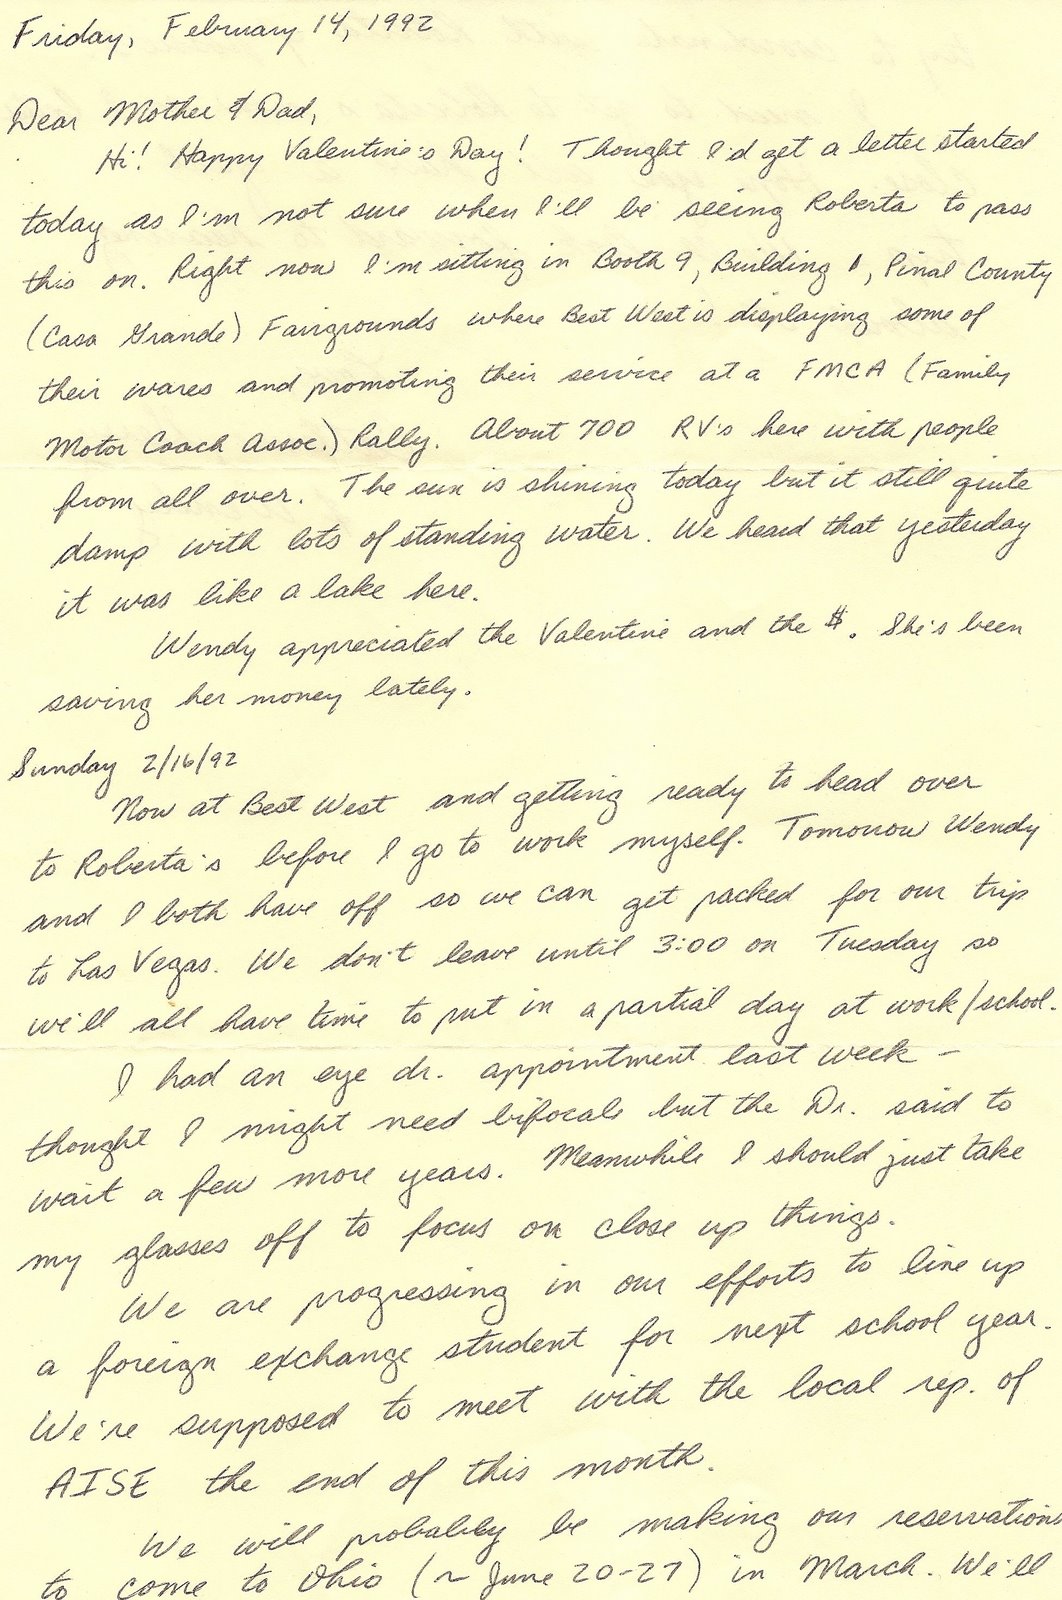 Friday, February 14, 1992
Dear Mother & Dad,
Hi! Happy Valentine's Day! Thought I'd get a letter started
today as I'm not sure when I'll be seeing Roberta to pass
this on. Right now I'm sitting in Booth 9, Building 1, Pinal County
(Casa Grande) Fairgrounds where Best West is displaying some of
their wares and promoting their service at a FMCA (Family
Motor Coach Assoc.) Rally. About 700 RV's here with people
from all over. The sun is shining today but it still quite
damp with lots of standing water. We heard that yesterday
it was like a lake here.
Wendy appreciated the Valentine and the $. She's been
saving her money lately.
Sunday 2/16/92
Now at Best West and getting ready to head over
to Roberta's before I go to work myself. Tomorrow Wendy
and I both have off so we can get packed for our trip
to Las Vegas. We don't leave until 3:00 on Tuesday so
we'll all have time to put in a partial day at work/school.
I had an eye dr. appointment last week -
thought I might need bifocals but the Dr. said to
wait a few more years. Meanwhile I should just take
my glasses off to focus on close up things.
We are progressing in our efforts to line up
a foreign exchange student for next school year.
We're supposed to meet with the local rep. of
AISE the end of this month.
We will probably be making our reservations
to come to Ohio (~ June 20-27) in March. We'll